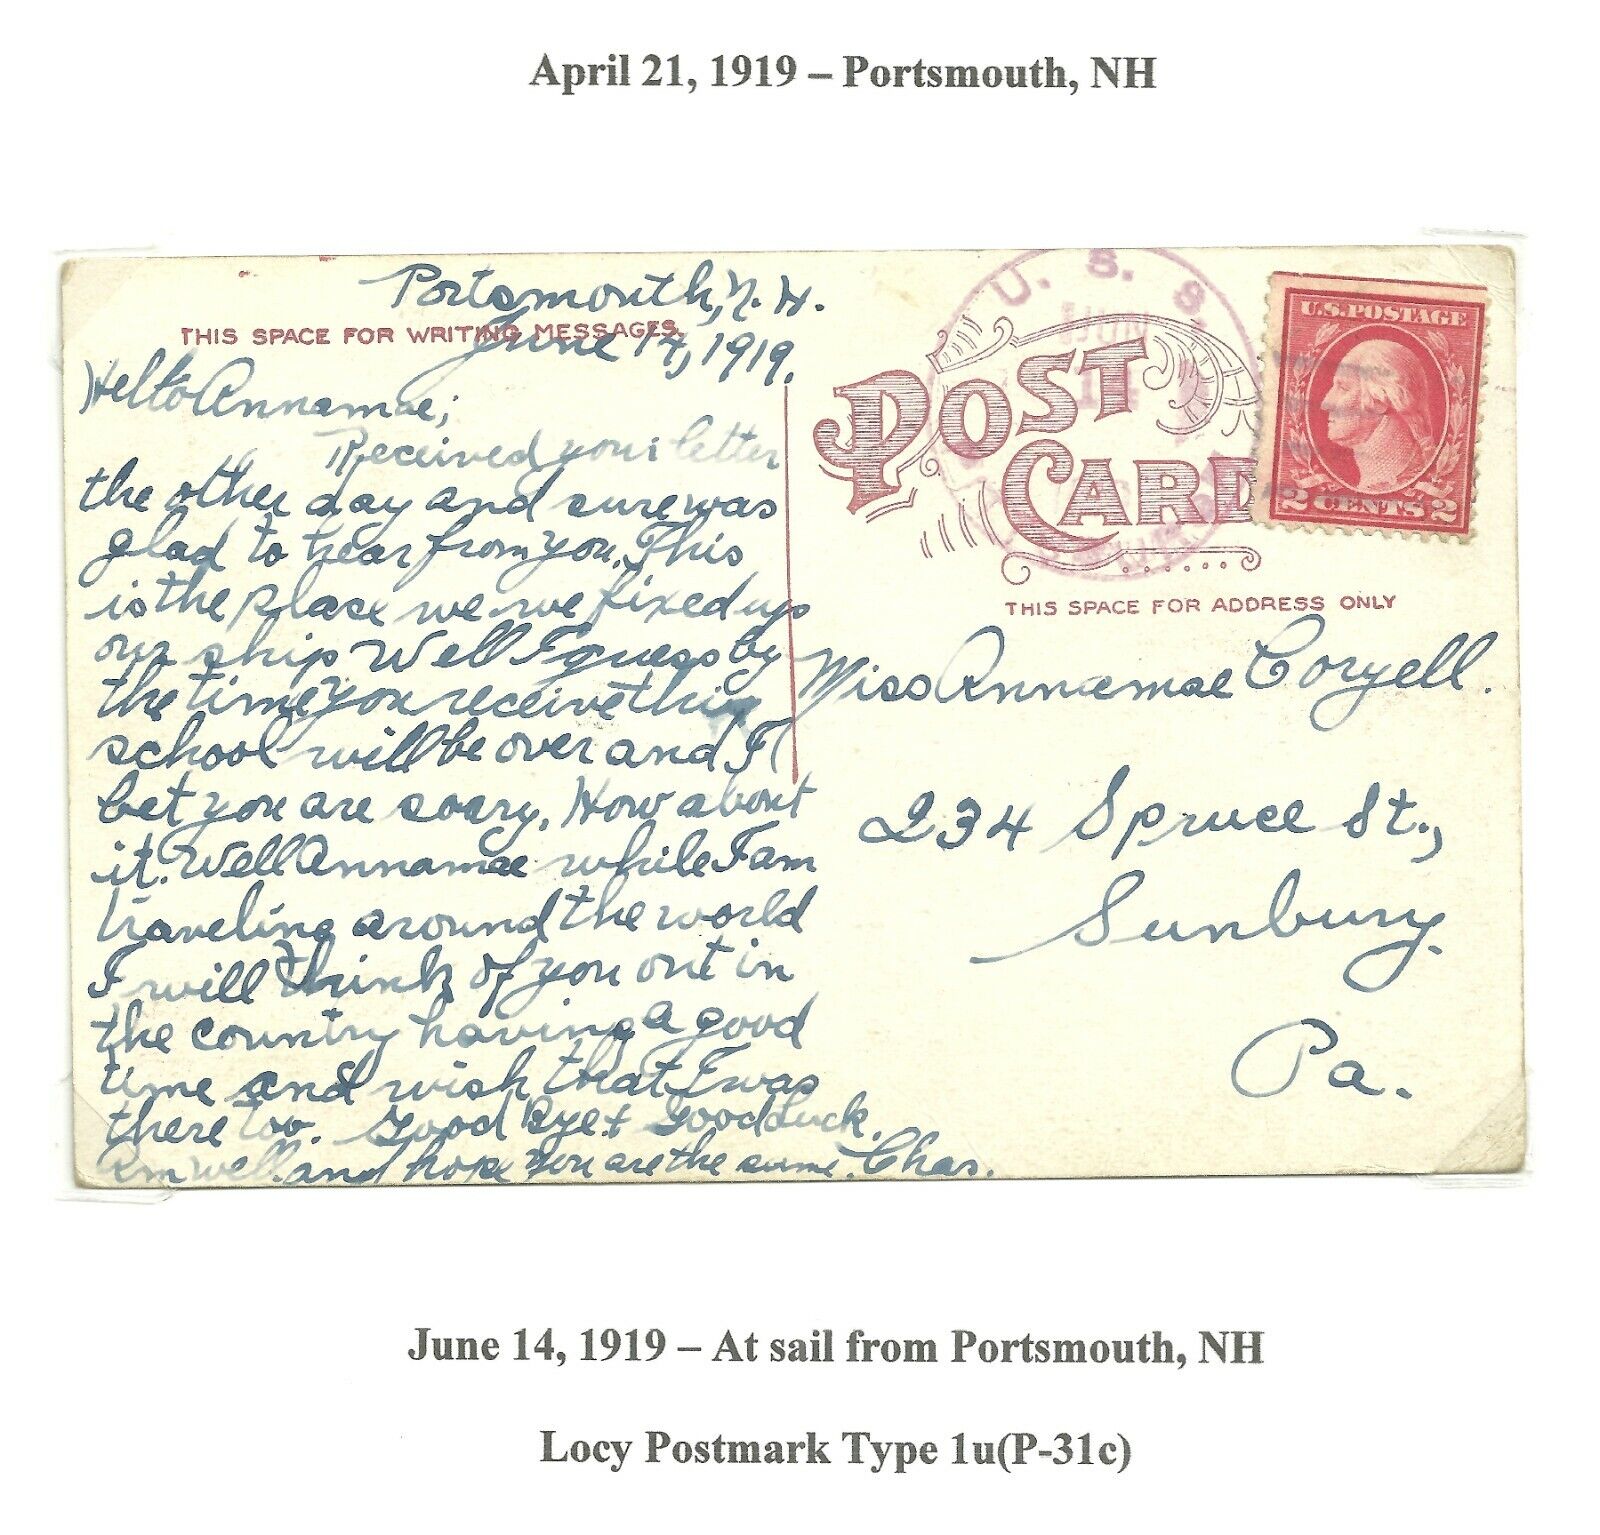 April 21, 1919 – Portsmouth, NH
Portsmouth, N. H.
THIS SPACE FOR WRITING MESSAGES.
June 14, 1919.
Hello Annamae;
Received your letter
the other day and sure was
glad to hear from you. This
is the place we we fixed up
our ship Well I guess by
the time you receive this
school will be over and I
bet you are sorry. How about
it. Well Annamae while I am
traveling around the world
I will think of you out in
the country having a good
time and wish that I was
there too. Good Bye + Good Luck.
Am well and hope you are the same. Chas.
U. S. S.
POST
CARD
U.S. POSTAGE
2 CENTS 2
THIS SPACE FOR ADDRESS ONLY
Miss Annamae Coryell.
234 Spruce St.,
Sunbury.
Pa.
June 14, 1919 – At sail from Portsmouth, NH
Locy Postmark Type 1u(P-31c)